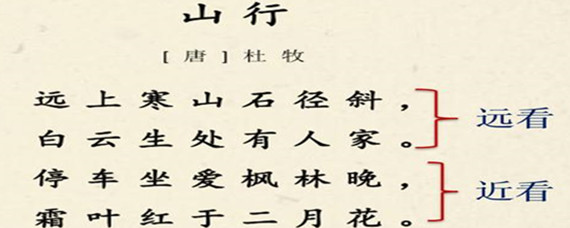 山行
[唐]杜牧
远上寒山石径斜，
白云生处有人家。
远看
停车坐爱枫林晚，
霜叶红于二月花。
近看